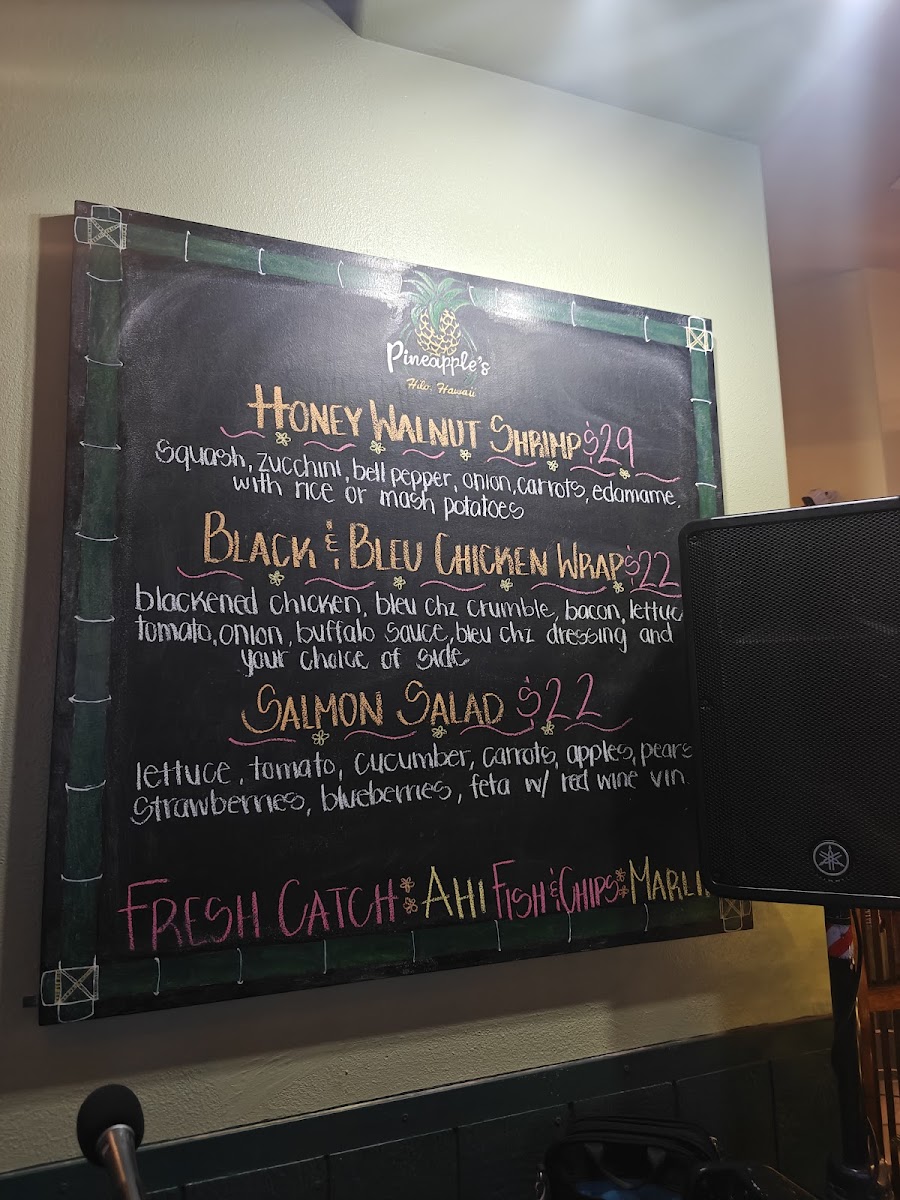 Pineapple's
Hilo, Hawaii
HONEY WALNUT SHRIMP $29
Squash, zucchini, bell pepper, onion, carrots, edamame,
with rice or mash potatoes
BLACK & BLEU CHICKEN WRAP $22
blackened chicken, bleu chz crumble, bacon, lettuc
tomato, onion, buffalo sauce, bleu chz dressing and
your choice of side
SALMON SALAD $22
lettuce, tomato, cucumber, carrots, apples, pears
strawberries, blueberries, feta w/ red wine vin.
FRESH CATCH: AHI FISH & CHIPS: MARLI